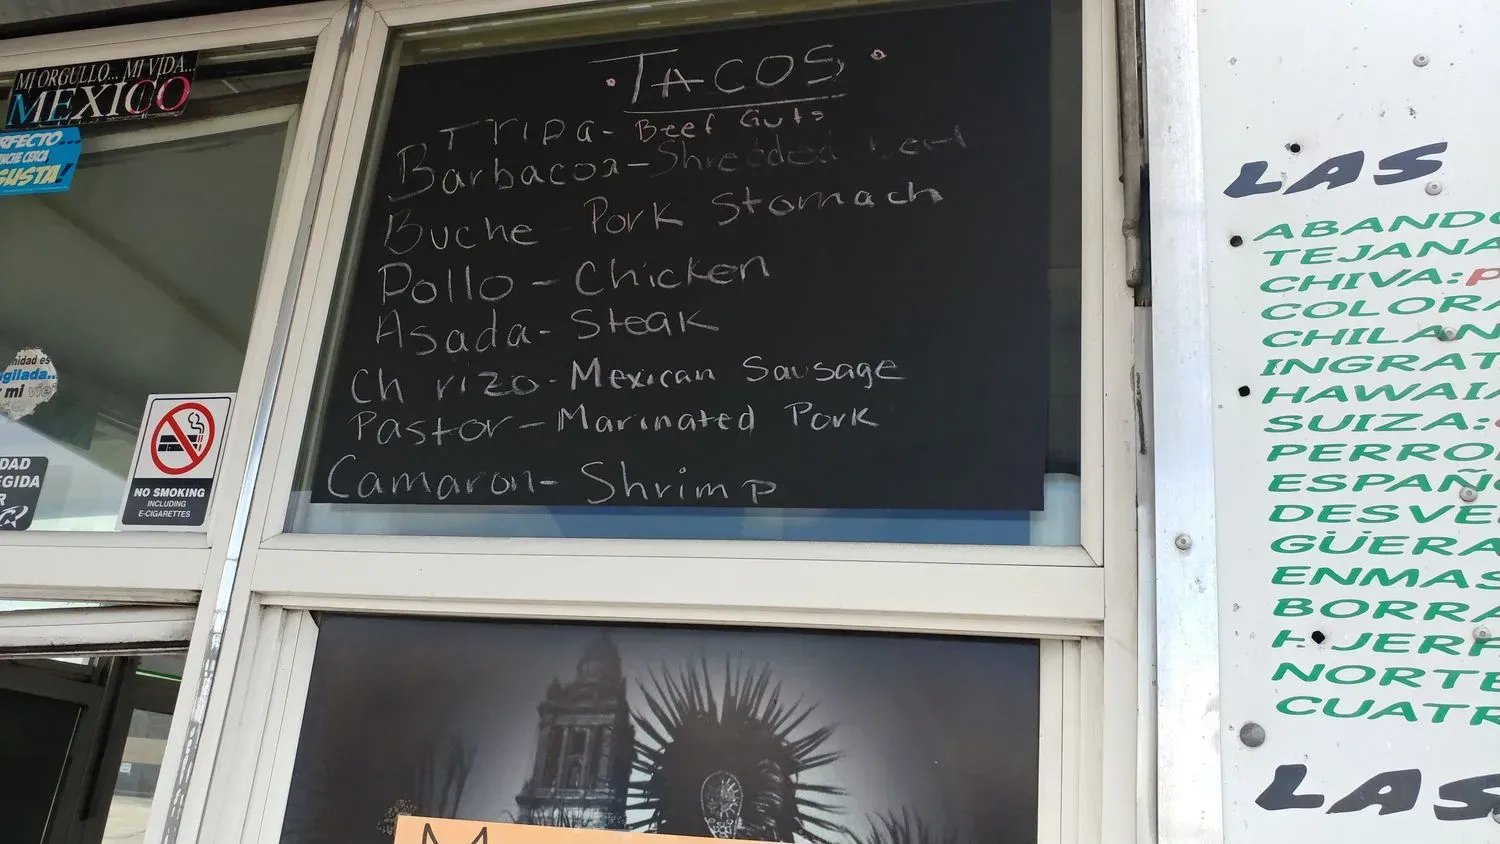 MI ORGULLO... MI VIDA...
MEXICO
RFECTO...
NCHE CERCA
GUSTA!
nidad es
gilada..
mi
DAD
EGIDA
R
NO SMOKING
INCLUDING
E-CIGARETTES
TACOS
Tripa - Beef Guts
Barbacoa - Shredded
Buche - Pork Stomach
Pollo - Chicken
Asada - Steak
Ch rizo - Mexican Sausage
Pastor - Marinated Pork
Camaron - Shrimp
LAS
ABANDO
TEJANA
CHIVA:P
COLORA
CHILAN
INGRAT
HAWAIA
SUIZA:
PERRO
ESPAÑ
DESVE
GÜERA
ENMAS
BORRA
H JERF
NORTE
CUATR
LAS
M